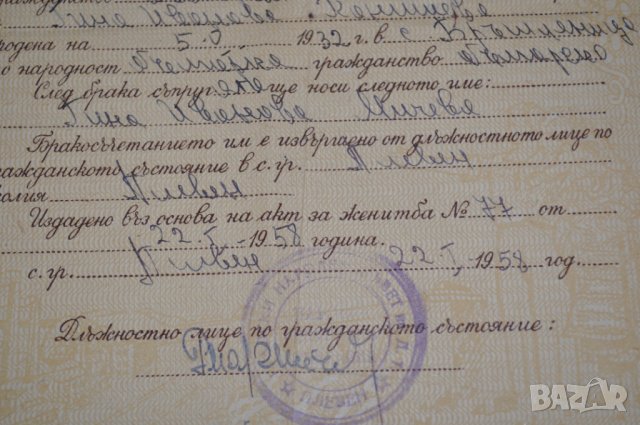 Гина Иванова
родена на 5.V 1932 г. в с. Кръшяница
по народност българка гражданство българско
След брака съпругата ще носи следното име:
Гина Иванова Мичева
Бракосъчетанието им е извършено от длъжностното лице по
гражданското състояние в с. гр. Плевен
околия Плевен
Издадено въз основа на акт за женитба № 77 от
22. I. 1958 година.
с. гр. Плевен 22. I. 1958 год.
Длъжностно лице по гражданското състояние:
ПЛЕВЕН
BAZAR